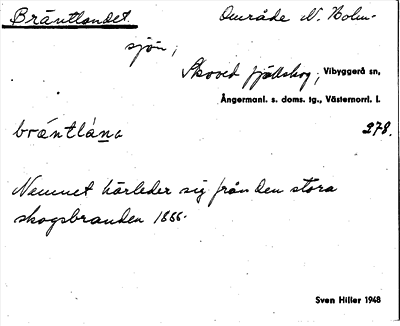 Bräntlandet. Område N. Holm-
sjön,
Skoved fjällskog, Vibyggerå sn,
Ångermanl. s. doms. tg., Västernorrl. l.
bräntlána 278.
Nemnet härleder sig från den stora
skogsbranden 1888.
Sven Hiller 1948